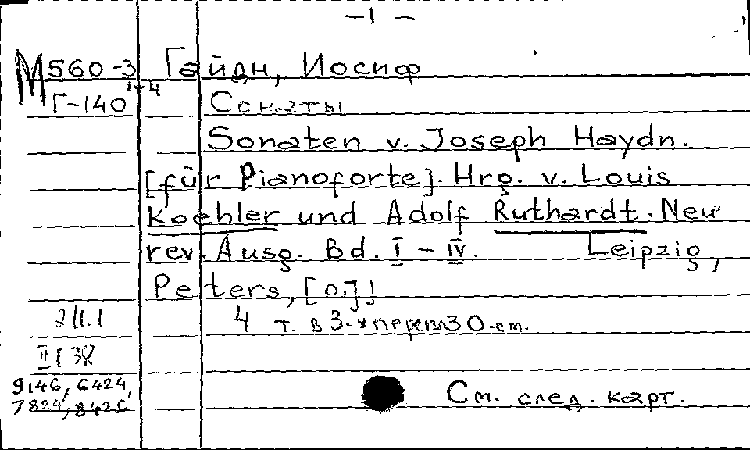 – 1 –
М 560-3 Гайдн, Иосиф
Г-140 1-4 Сонаты
Sonaten v. Joseph Haydn.
[für Pianoforte]. Hrg. v. Louis
Koehler und Adolf Ruthardt. Neu
rev. Ausg. Bd. I – IV. Leipzig,
Peters,
4 т. в 3-х перепл. 30 cm.
II 38
9146, 6424,
7824, 8426 См. след. карт.